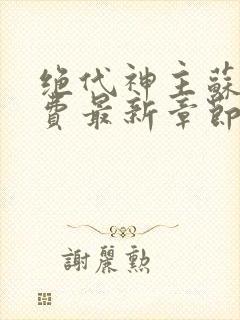 绝代神主蘇
費最新章節
謝麗勲